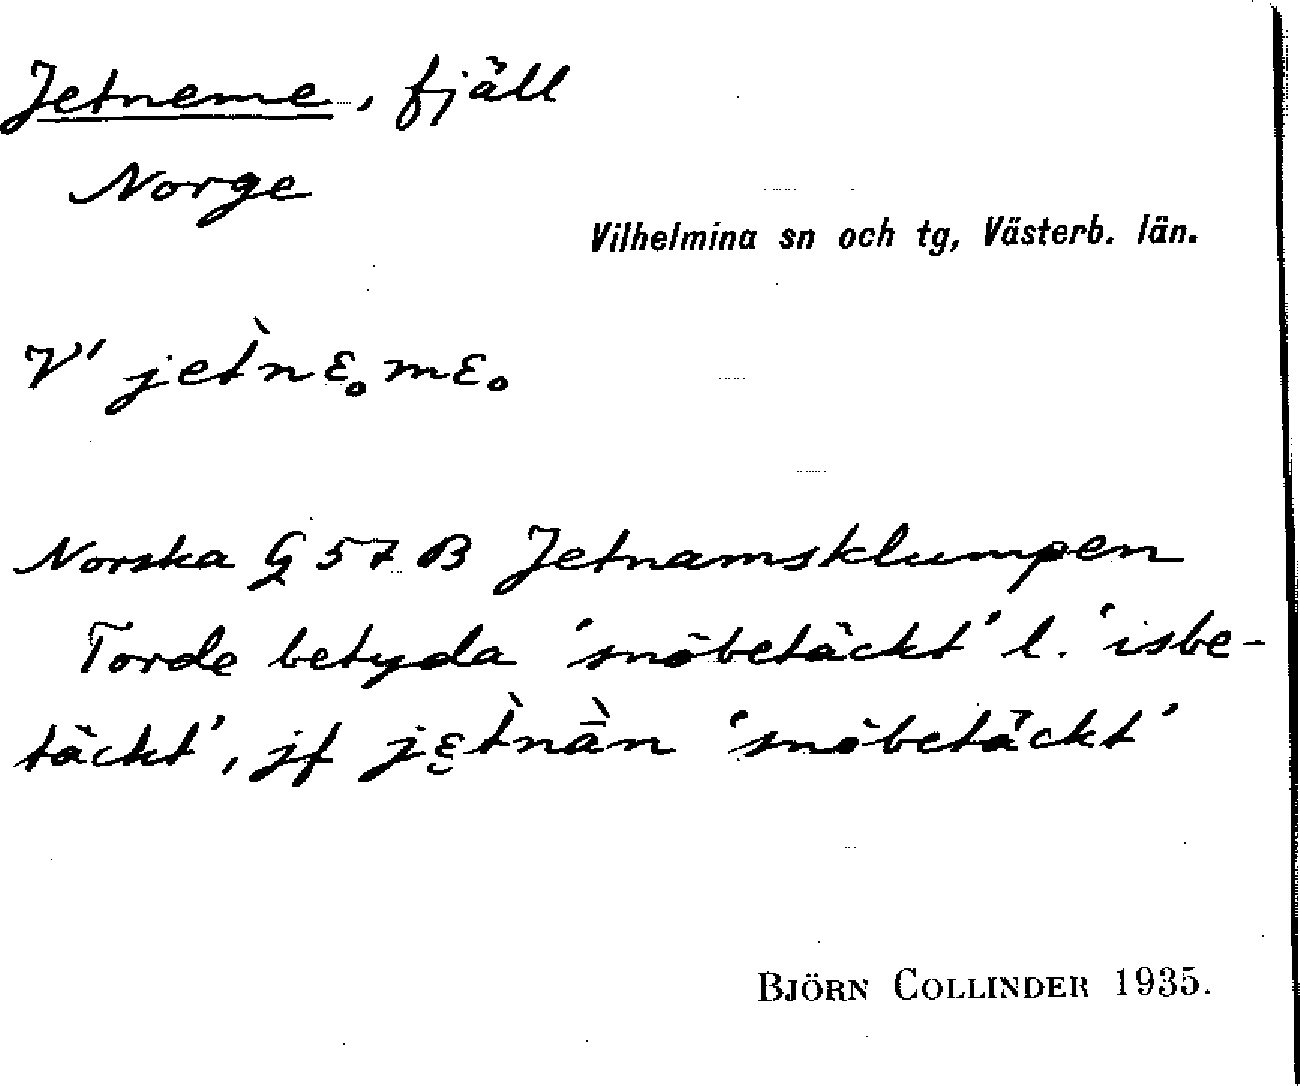 Jetneme, fjäll
Norge
Vilhelmina sn och tg, Västerb. län.
V' jet̀nɛ̥mɛ̥
Norska G 57 B Jetnamsklumpen
Torde betyda 'snöbetäckt' l. 'isbe-
täckt', jf jɛ̮t̀nā̀n 'snöbetäckt'
BJÖRN COLLINDER 1935.